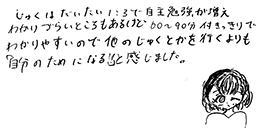 じゅくはだいたい1:3で自主勉強が増え
わかりづらいところもあるけど、60～90分付きっきりで
わかりやすいので他のじゅくとかを行くよりも
「自分のためになる」と感じました。